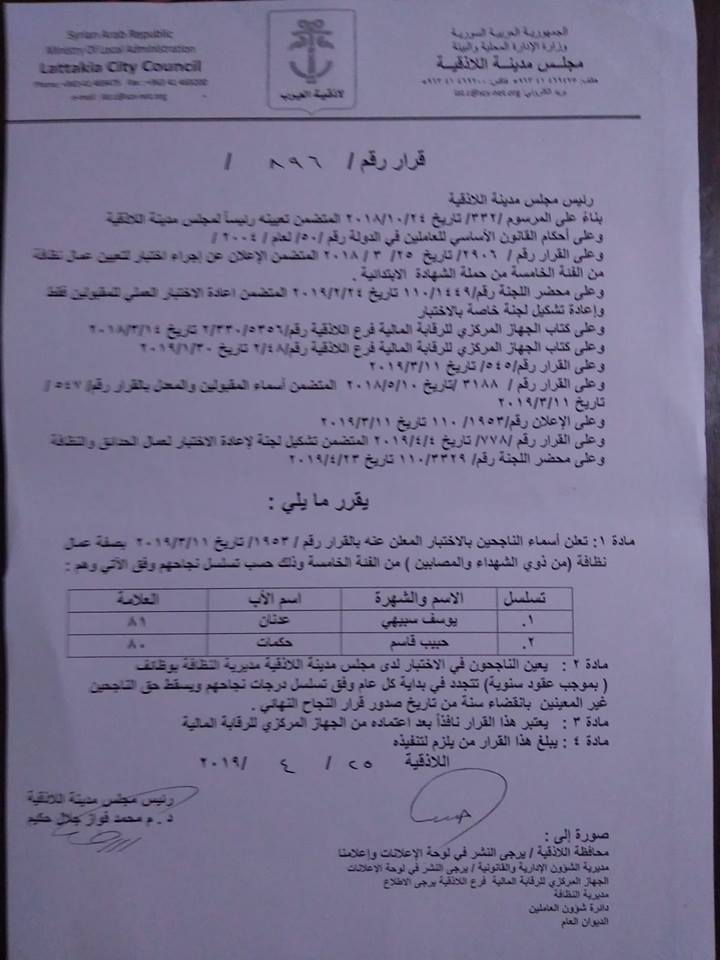 Syrian Arab Republic
Ministry Of Local Administration
Lattakia City Council
الجمهورية العربية السورية
وزارة الإدارة المحلية والبيئة
مجلس مدينة اللاذقية
قرار رقم / ٨٩٦ /
رئيس مجلس مدينة اللاذقية
بناءً على المرسوم /٣٣٢/ تاريخ ٢٠١٨/١٠/٢٤ المتضمن تعيينه رئيساً لمجلس مدينة اللاذقية
وعلى أحكام القانون الأساسي للعاملين في الدولة رقم /٥٠/ لعام /٢٠٠٤/
وعلى القرار رقم / ٢٩٠٦/ تاريخ ٢٥/ ٣ / ٢٠١٨ المتضمن الإعلان عن إجراء اختبار لتعيين عمال نظافة
من الفئة الخامسة من حملة الشهادة الابتدائية .
وعلى محضر اللجنة رقم/١١٠/١٤٤٩ تاريخ ٢٠١٩/٢/٢٤ المتضمن اعادة الاختبار العملي للمقبولين فقط
وإعادة تشكيل لجنة خاصة بالاختبار
وعلى كتاب الجهاز المركزي للرقابة المالية فرع اللاذقية رقم/٢/٣٣٠/٥٣٥٦ تاريخ ٢٠١٨/٣/١٤
وعلى كتاب الجهاز المركزي للرقابة المالية فرع اللاذقية رقم/٢/٤٨ تاريخ ٢٠١٩/١/٣٠
وعلى القرار رقم/٥٤٥/ تاريخ ٢٠١٩/٣/١١
وعلى القرار رقم / ٣١٨٨ /تاريخ ٢٠١٨/٥/١٠ المتضمن أسماء المقبولين والمعدل بالقرار رقم/ ٥٤٧ /
تاريخ ٢٠١٩/٣/١١
وعلى الإعلان رقم/١٩٥٣/ ١١٠ تاريخ ٢٠١٩/٣/١١
وعلى القرار رقم /٧٧٨/ تاريخ ٢٠١٩/٤/٤ المتضمن تشكيل لجنة لإعادة الاختبار لعمال الحدائق والنظافة
وعلى محضر اللجنة رقم/ ١١٠/٣٣٢٩ تاريخ ٢٠١٩/٤/٢٣
يقرر ما يلي :
مادة ١: تعلن أسماء الناجحين بالاختبار المعلن عنه بالقرار رقم / ١٩٥٣/ تاريخ ٢٠١٩/٣/١١ بصفة عمال
نظافة (من ذوي الشهداء والمصابين ) من الفئة الخامسة وذلك حسب تسلسل نجاحهم وفق الآتي وهم :
تسلسل الاسم والشهرة اسم الأب العلامة
١. يوسف سبيهي عدنان ٨١
٢. حبيب قاسم حكمات ٨٠
مادة ٢ : يعين الناجحون في الاختبار لدى مجلس مدينة اللاذقية مديرية النظافة بوظائف
( بموجب عقود سنوية) تتجدد في بداية كل عام وفق تسلسل درجات نجاحهم ويسقط حق الناجحين
غير المعينين بانقضاء سنة من تاريخ صدور قرار النجاح النهائي .
مادة ٣ : يعتبر هذا القرار نافذاً بعد اعتماده من الجهاز المركزي للرقابة المالية
مادة ٤ : يبلغ هذا القرار من يلزم لتنفيذه
اللاذقية ٢٥ / ٤ /٢٠١٩
رئيس مجلس مدينة اللاذقية
د . م محمد فواز جلال حكيم
صورة إلى :
محافظة اللاذقية / يرجى النشر في لوحة الإعلانات وإعلامنا
مديرية الشؤون الإدارية والقانونية / يرجى النشر في لوحة الإعلانات
الجهاز المركزي للرقابة المالية فرع اللاذقية يرجى الاطلاع
مديرية النظافة
دائرة شؤون العاملين
الديوان العام